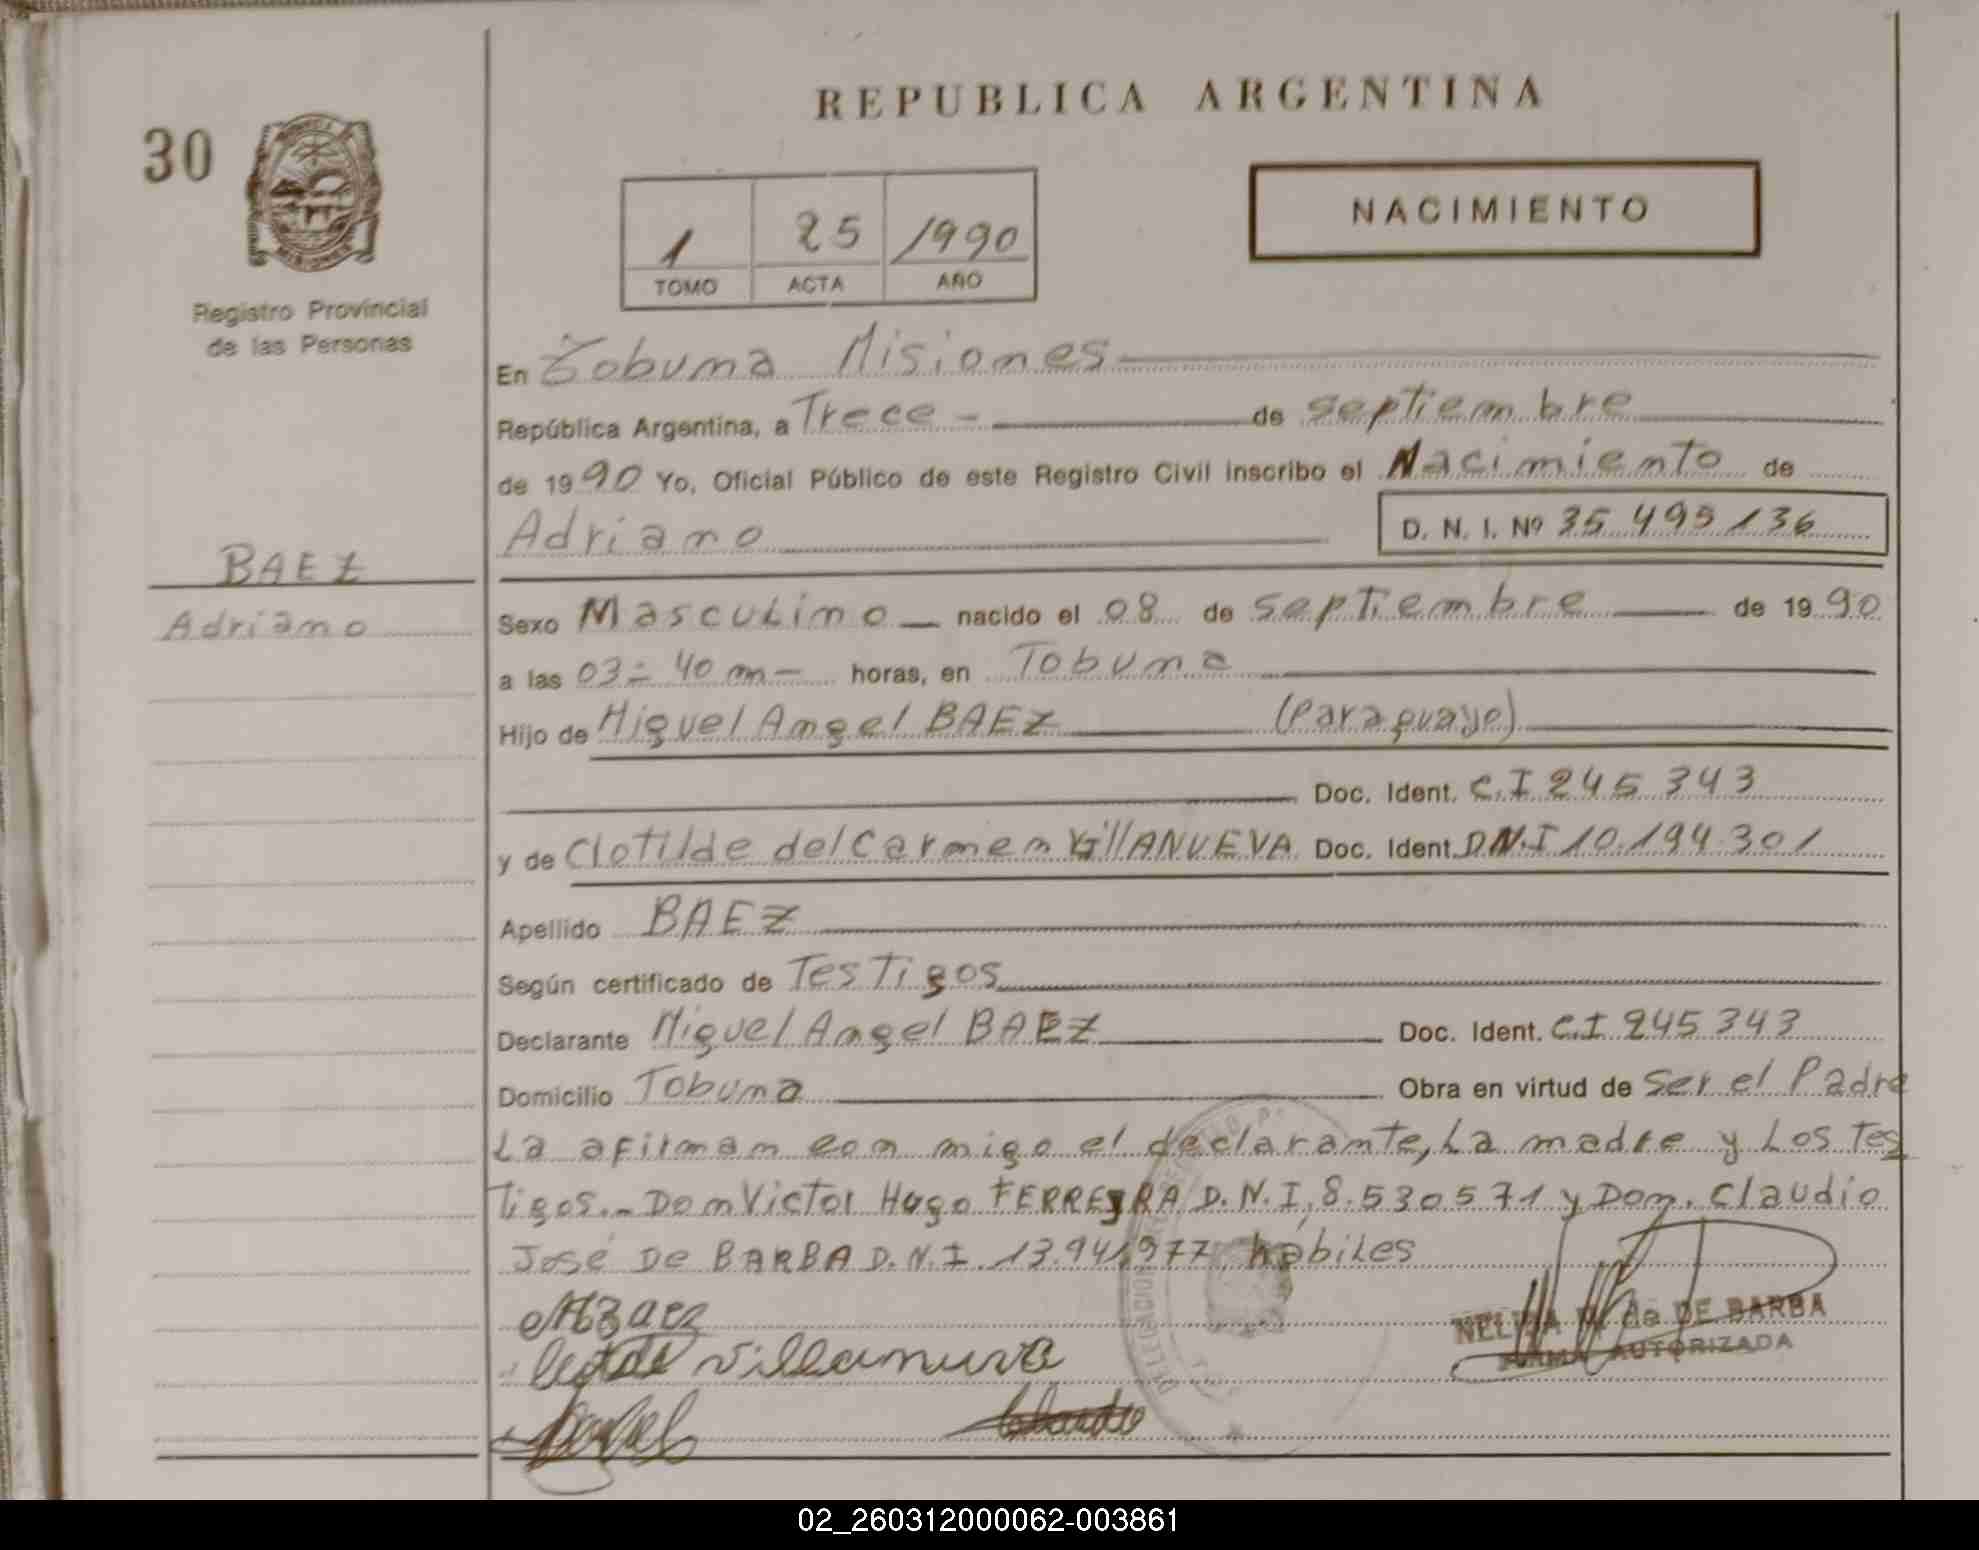 REPUBLICA ARGENTINA
30
NACIMIENTO
1 25 1990
TOMO ACTA AÑO
Registro Provincial
de las Personas
En Tobuma Misiones
República Argentina, a Trece - de septiembre
de 1990 Yo, Oficial Público de este Registro Civil inscribo el Nacimiento de
Adriano D. N. I. Nº 35 495 136
BAEZ
Adriano
Sexo Masculino nacido el 08 de septiembre de 1990
a las 03= 40 m - horas, en Tobuma
Hijo de Miguel Angel BAEZ (Paraguayo)
Doc. Ident. C.I 245 343
y de Clotilde del Carmen VillANUEVA Doc. Ident. D.N.I 10.194.301
Apellido BAEZ
Según certificado de Testigos
Declarante Miguel Angel BAEZ Doc. Ident. C.I 245 343
Domicilio Tobuma Obra en virtud de Ser el Padre
La afirman con migo el declarante, La madre y Los Tes
tigos.- Don Victor Hugo FERREYRA D.N.I, 8.530571 y Don. Claudio
José De BARBA D.N.I. 13.941,977 habiles
Villanueva
de DE BARBA
FIRMA AUTORIZADA
02_260312000062-003861